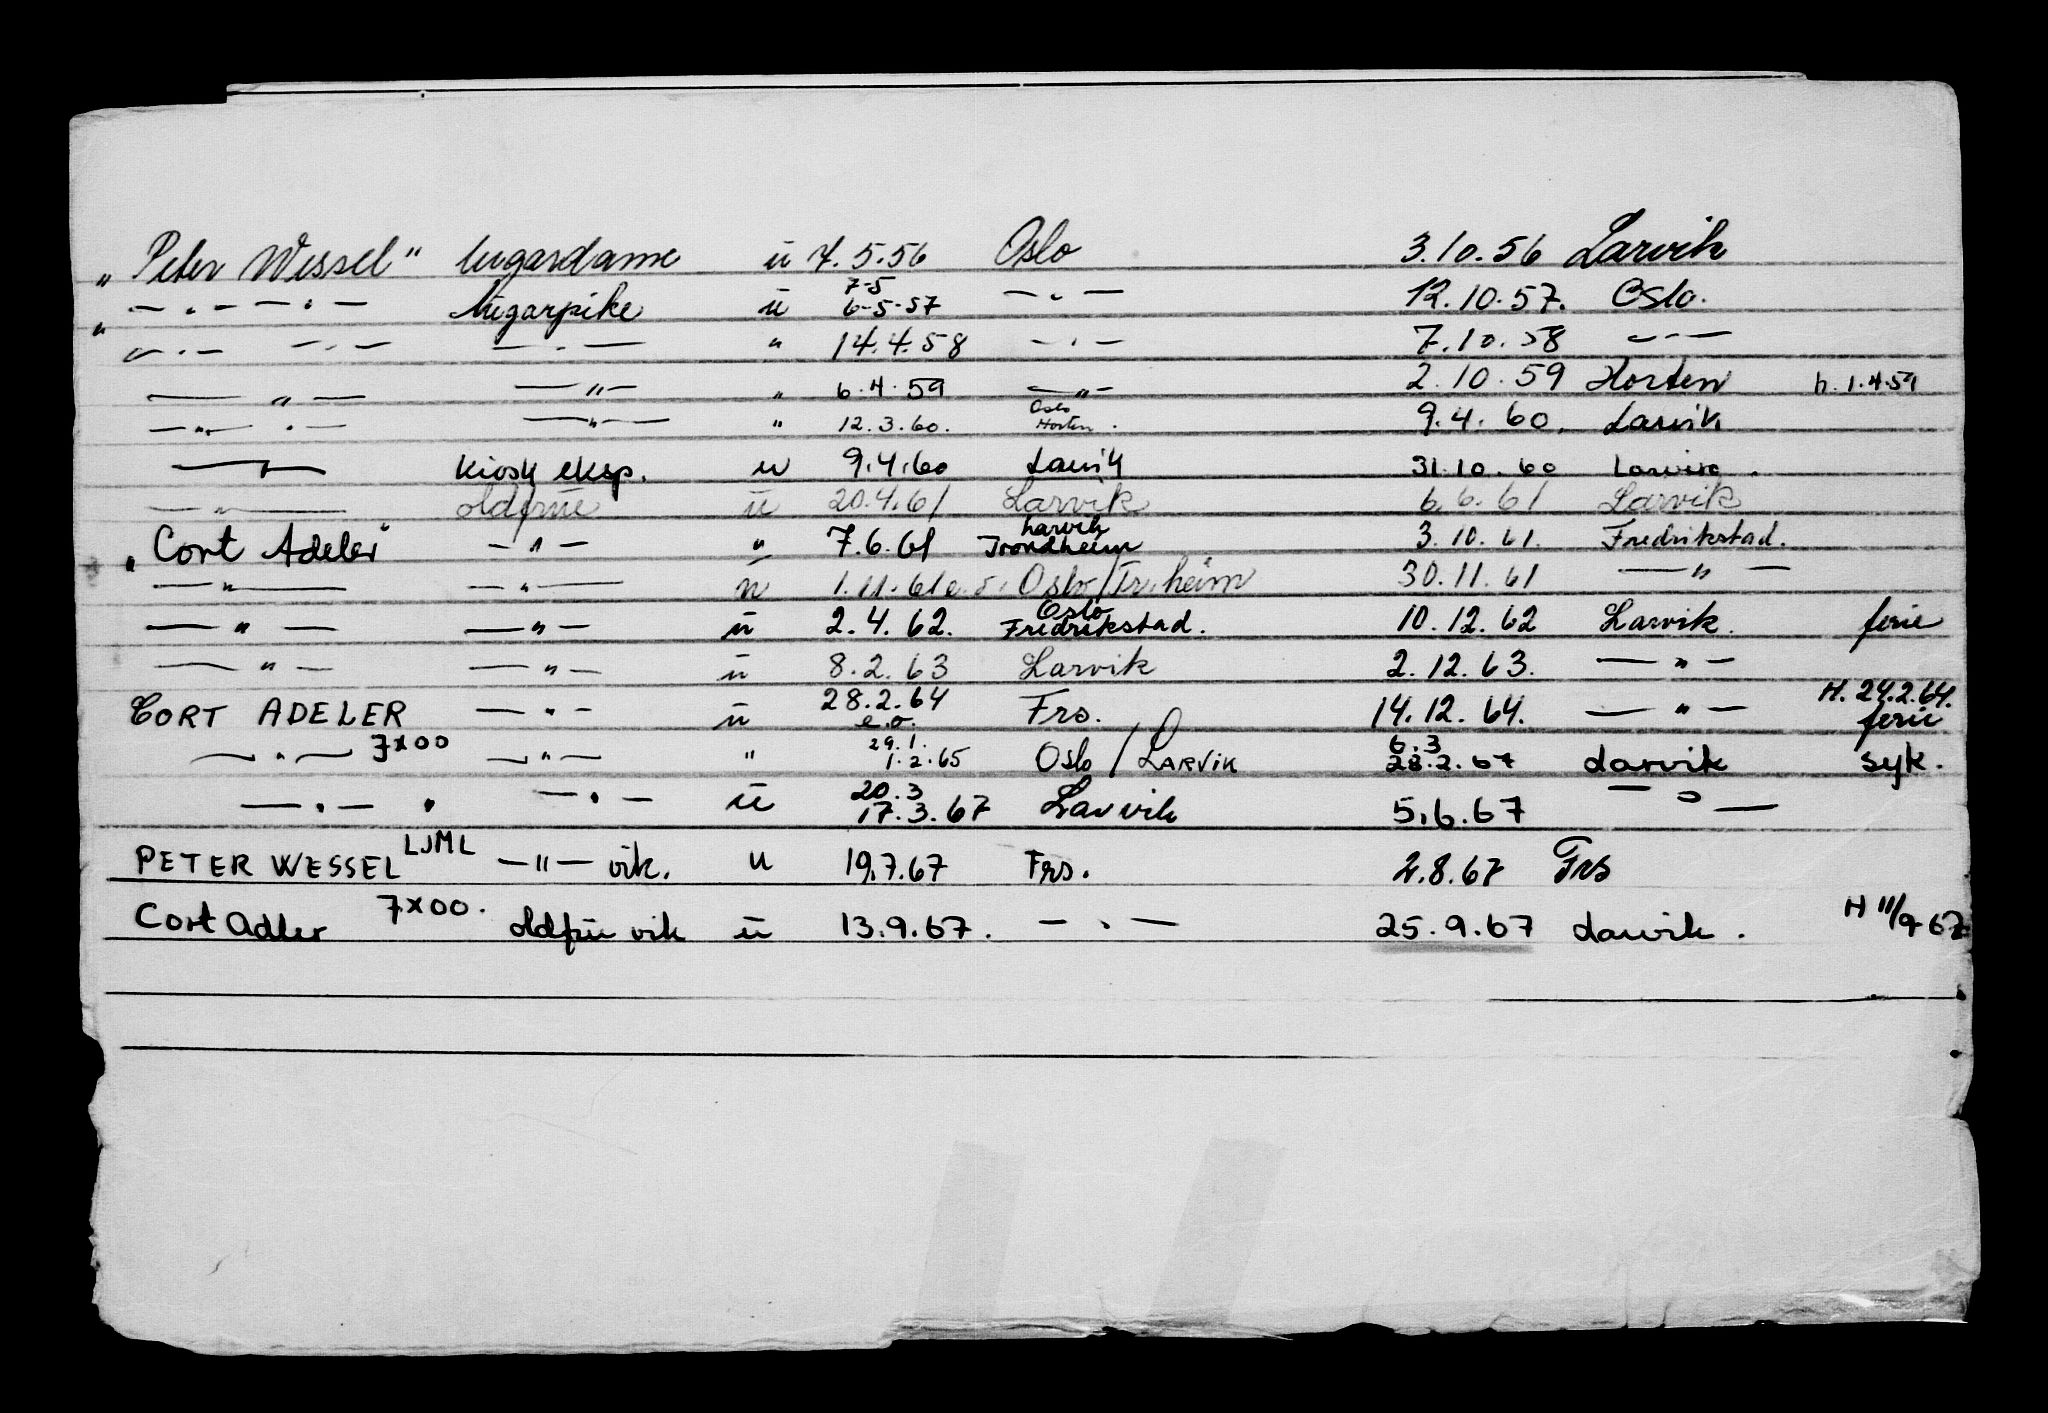 "Peter Wessel" lugardame ü 7.5.56 Oslo 3.10.56 Larvik
7-5
" — " — — " — lugarpike ü 6-5-57 — " — 12.10.57. Oslo.
" — " — — " — — " — " 14.4.58 — " — 7.10.58 — " —
— " — — " — " 6.4.59 — " — 2.10.59 Horten h. 1.4.59
Oslo
— " — " — — " — " 12.3.60. Horten. 9.4.60. Larvik
— " — Kiosk eksp. u 9.4.60 Larvik 31.10.60 Larvik.
— " — oldfrue ü 20.4.61 Larvik 6.6.61 Larvik
Larvik
"Cort Adeler" — " — " 7.6.61 Trondheim 3.10.61. Fredrikstad.
— " — — " — u 1.11.61 e.o. Oslo/Tr.heim 30.11.61 — " —
Oslo
— " — — " — ü 2.4.62. Fredrikstad. 10.12.62 Larvik. ferie
— " — — " — ü 8.2.63 Larvik 2.12.63. — " —
28.2.64 H. 24.2.64.
CORT ADELER — " — ü e.o. Frs. 14.12.64. — " — ferie
7x00 29.1. 6.3
— " — — " — " 1.2.65 Oslo / LARVIK 28.2.67 Larvik syk.
20.3
— " — " — " — ü 17.3.67 Larvik 5.6.67 — " —
LJML
PETER WESSEL — " — vik. u 19.7.67 Frs. 2.8.67 Frs
7x00. H 11/9 67
Cort Adler oldfru vik ü 13.9.67. — " — 25.9.67 Larvik.